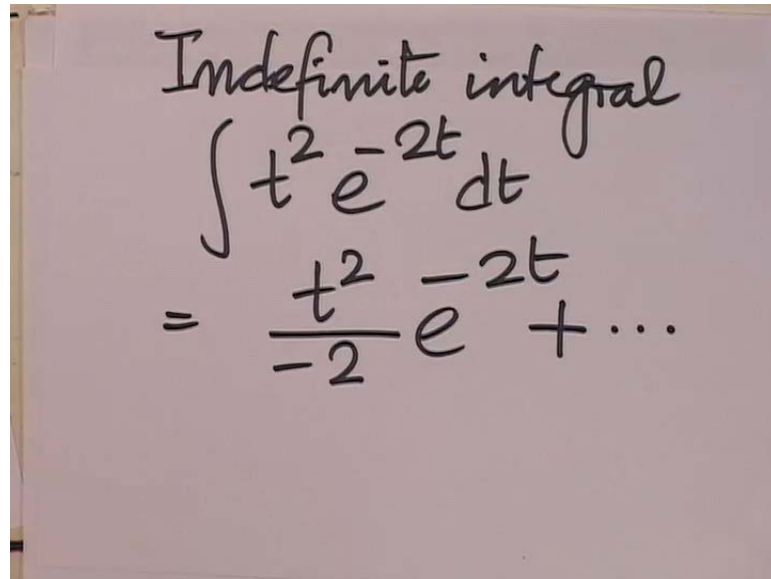 Indefinite integral
∫ t² e^{-2t} dt
= \frac{t²}{-2} e^{-2t} + ...